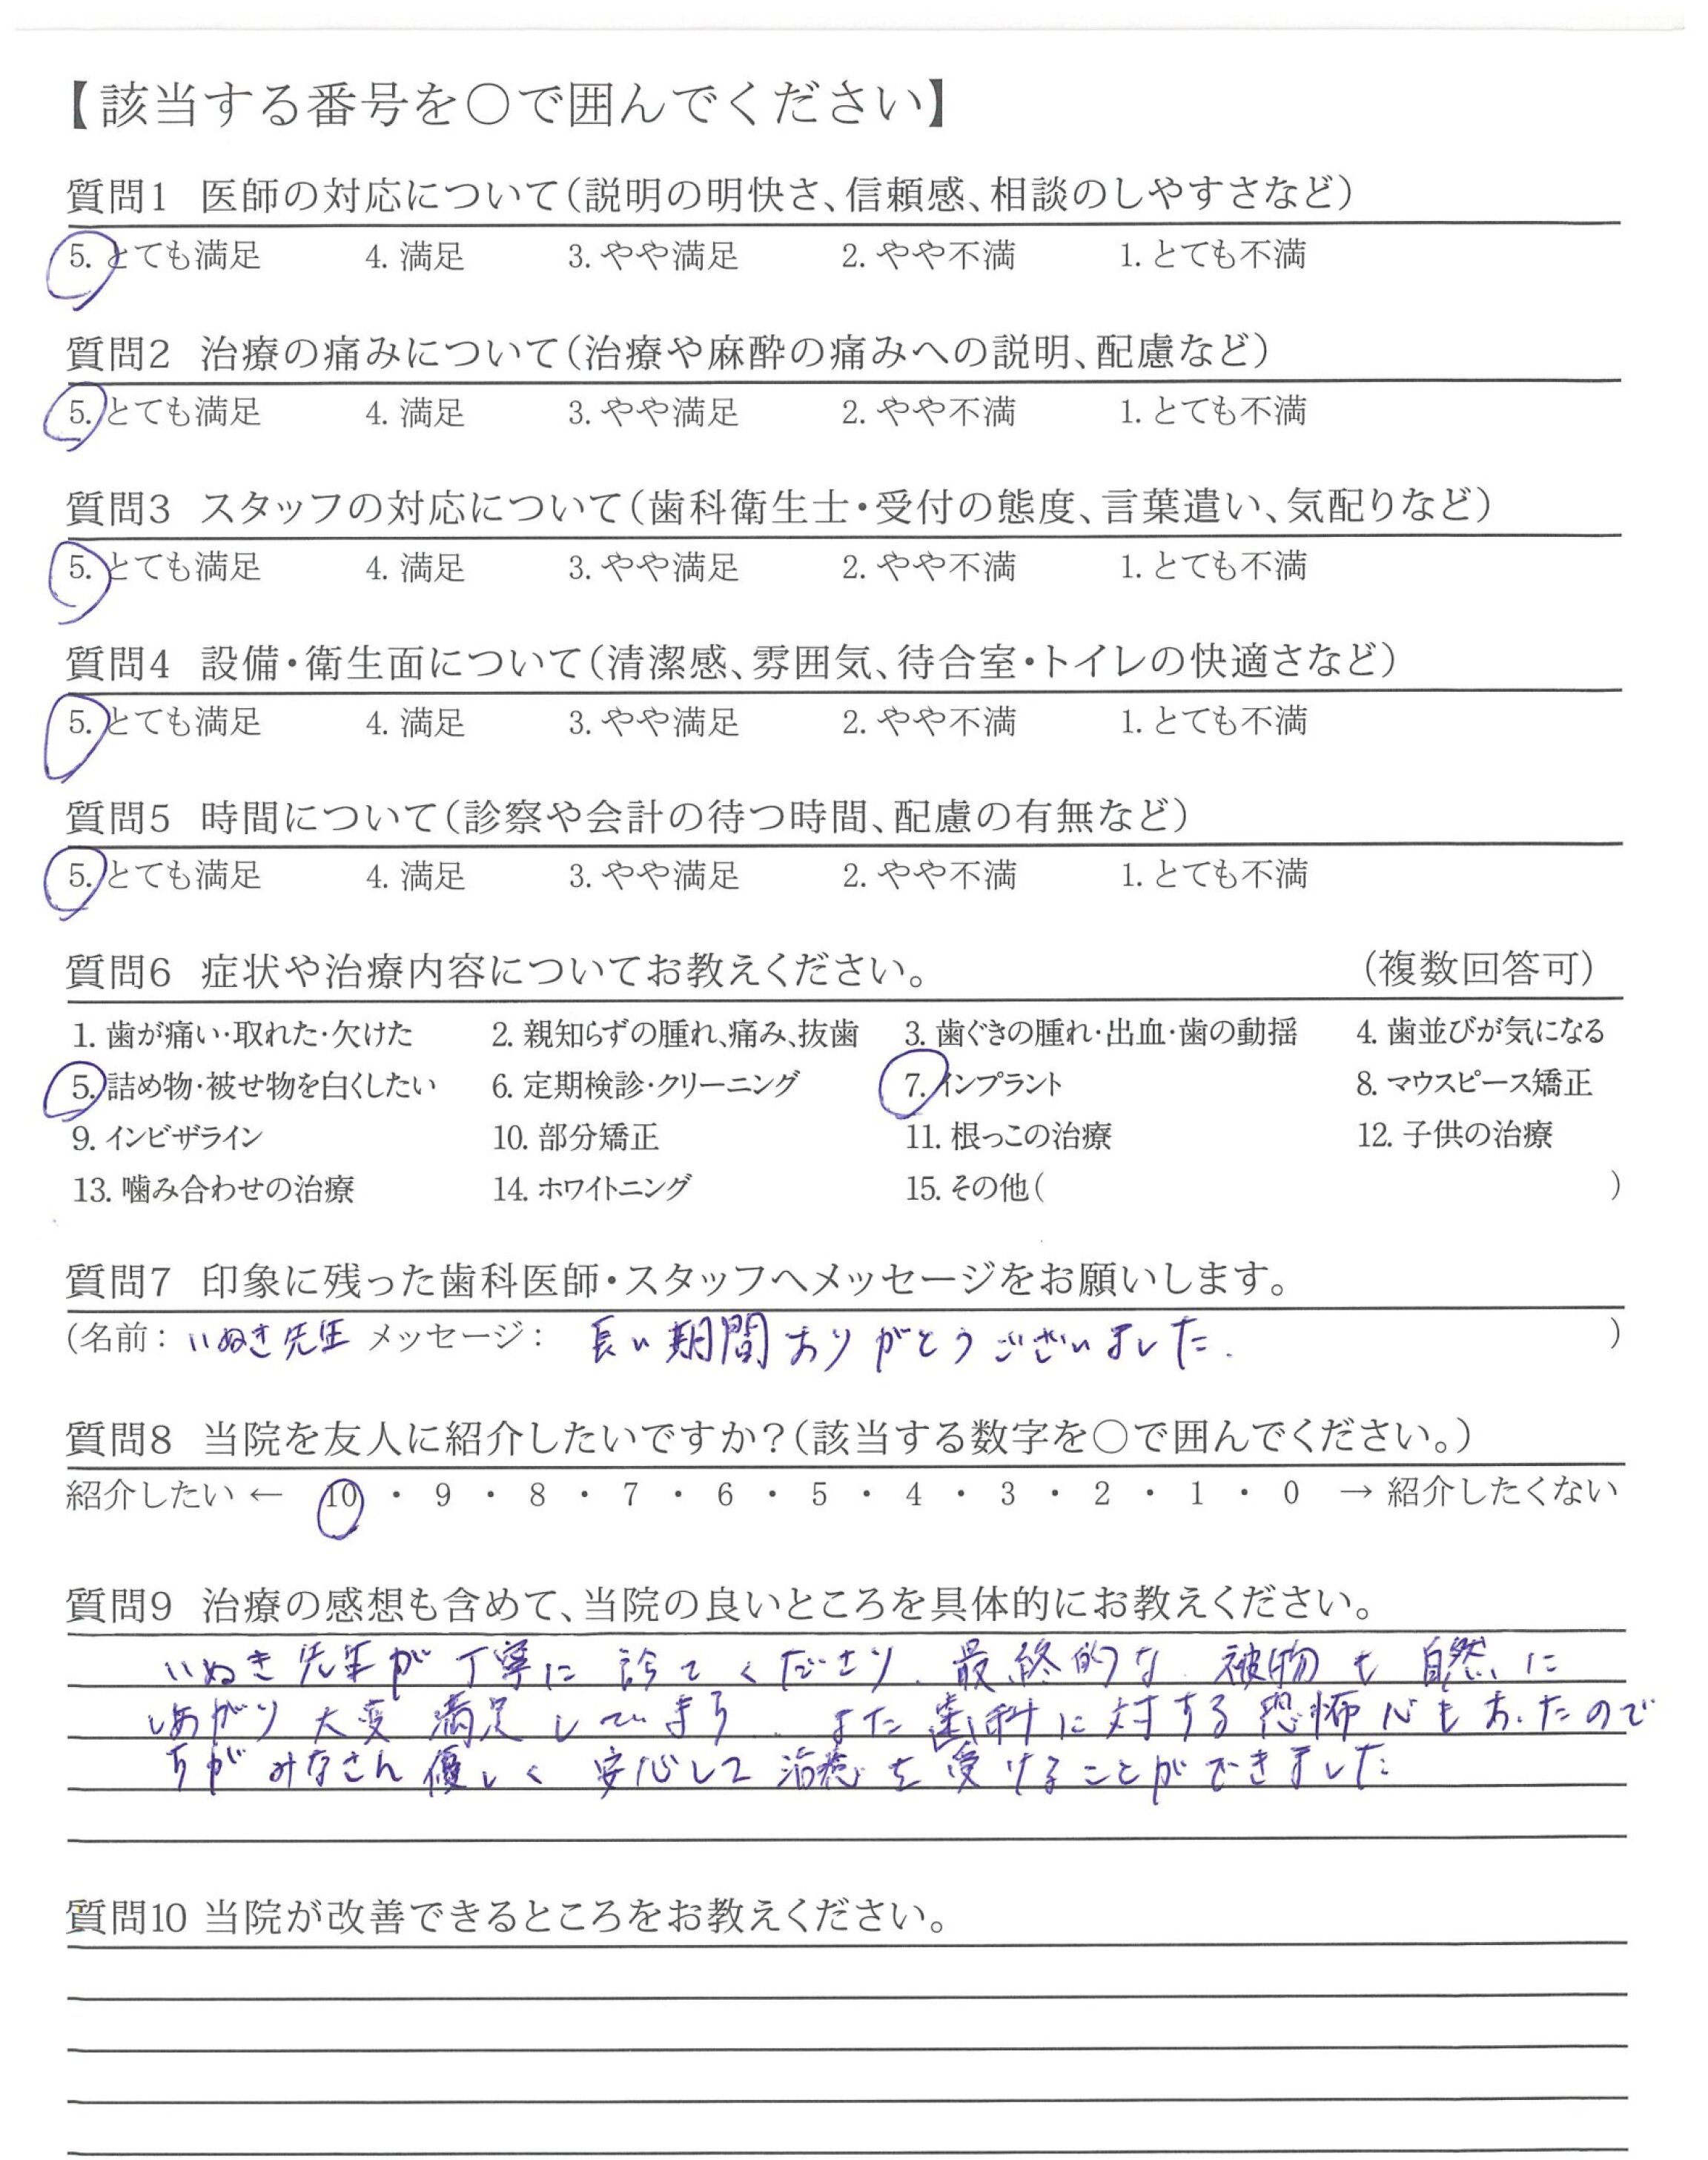 【該当する番号を○で囲んでください】
質問1 医師の対応について(説明の明快さ、信頼感、相談のしやすさなど)
5. とても満足 4. 満足 3. やや満足 2. やや不満 1. とても不満
質問2 治療の痛みについて(治療や麻酔の痛みへの説明、配慮など)
5. とても満足 4. 満足 3. やや満足 2. やや不満 1. とても不満
質問3 スタッフの対応について(歯科衛生士・受付の態度、言葉遣い、気配りなど)
5. とても満足 4. 満足 3. やや満足 2. やや不満 1. とても不満
質問4 設備・衛生面について(清潔感、雰囲気、待合室・トイレの快適さなど)
5. とても満足 4. 満足 3. やや満足 2. やや不満 1. とても不満
質問5 時間について(診察や会計の待つ時間、配慮の有無など)
5. とても満足 4. 満足 3. やや満足 2. やや不満 1. とても不満
質問6 症状や治療内容についてお教えください。 (複数回答可)
1. 歯が痛い・取れた・欠けた 2. 親知らずの腫れ、痛み、抜歯 3. 歯ぐきの腫れ・出血・歯の動揺 4. 歯並びが気になる
5. 詰め物・被せ物を白くしたい 6. 定期検診・クリーニング 7. インプラント 8. マウスピース矯正
9. インビザライン 10. 部分矯正 11. 根っこの治療 12. 子供の治療
13. 噛み合わせの治療 14. ホワイトニング 15. その他( )
質問7 印象に残った歯科医師・スタッフへメッセージをお願いします。
(名前: いぬき先生 メッセージ: 長い期間ありがとうございました. )
質問8 当院を友人に紹介したいですか?(該当する数字を○で囲んでください。)
紹介したい ← 10 ・ 9 ・ 8 ・ 7 ・ 6 ・ 5 ・ 4 ・ 3 ・ 2 ・ 1 ・ 0 → 紹介したくない
質問9 治療の感想も含めて、当院の良いところを具体的にお教えください。
いぬき先生が丁寧に診てくださり、最終的な被物も自然に
しあがり大変満足しています。また歯科に対する恐怖心もあったので
すがみなさん優しく安心して治療を受けることができました
質問10 当院が改善できるところをお教えください。